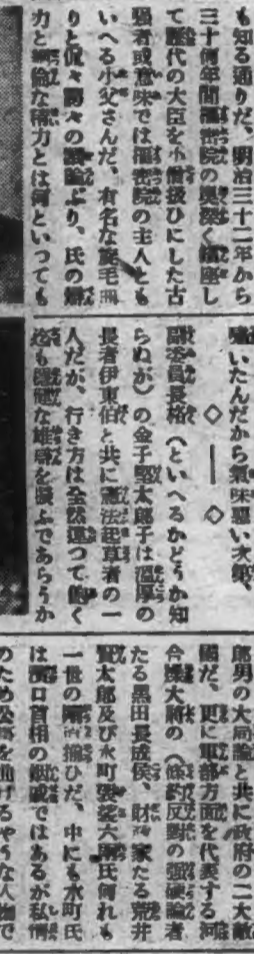 も知る通りだ、明治三十二年から
三十何年間樞密院の奥深く鎭座し
て歴代の大臣を小僧扱ひにした古
強者或意味では樞密院の主人とも
いへる小父さんだ、有名な旋毛
りと侃々諤々の議論ぶり、氏の
力と絶倫な精力とは何といつても
嘯いたんだから氣味惡い次第、
◇――◇
副委員長格(といへるかどうか知
らぬが)の金子堅太郎子は溫厚の
長者伊東伯と共に憲法起草者の一
人だが、行き方は全然違つて飽く
迄も穩健な雄辯を揮ふであらうか
郎男の大局論と共に政府の二大敵
國だ、更に軍部方面を代表する河
合操大將の(條約反對の强硬論者
たる黑田長成侯、財務家たる荒井
賢太郎及び水町袈裟六兩氏何れも
一世の揃ひだ、中にも水町氏
は濱口首相の親戚ではあるが私情
のため公事を曲げるやうな人物で